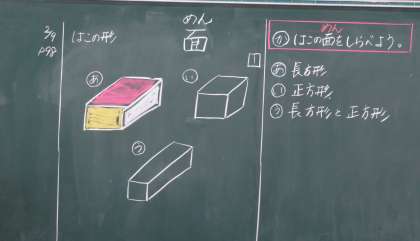 3/9
P98
はこの形
めん
面
あ
い
う
めん
か はこの面をしらべよう。
あ 長方形
い 正方形
う 長方形と正方形